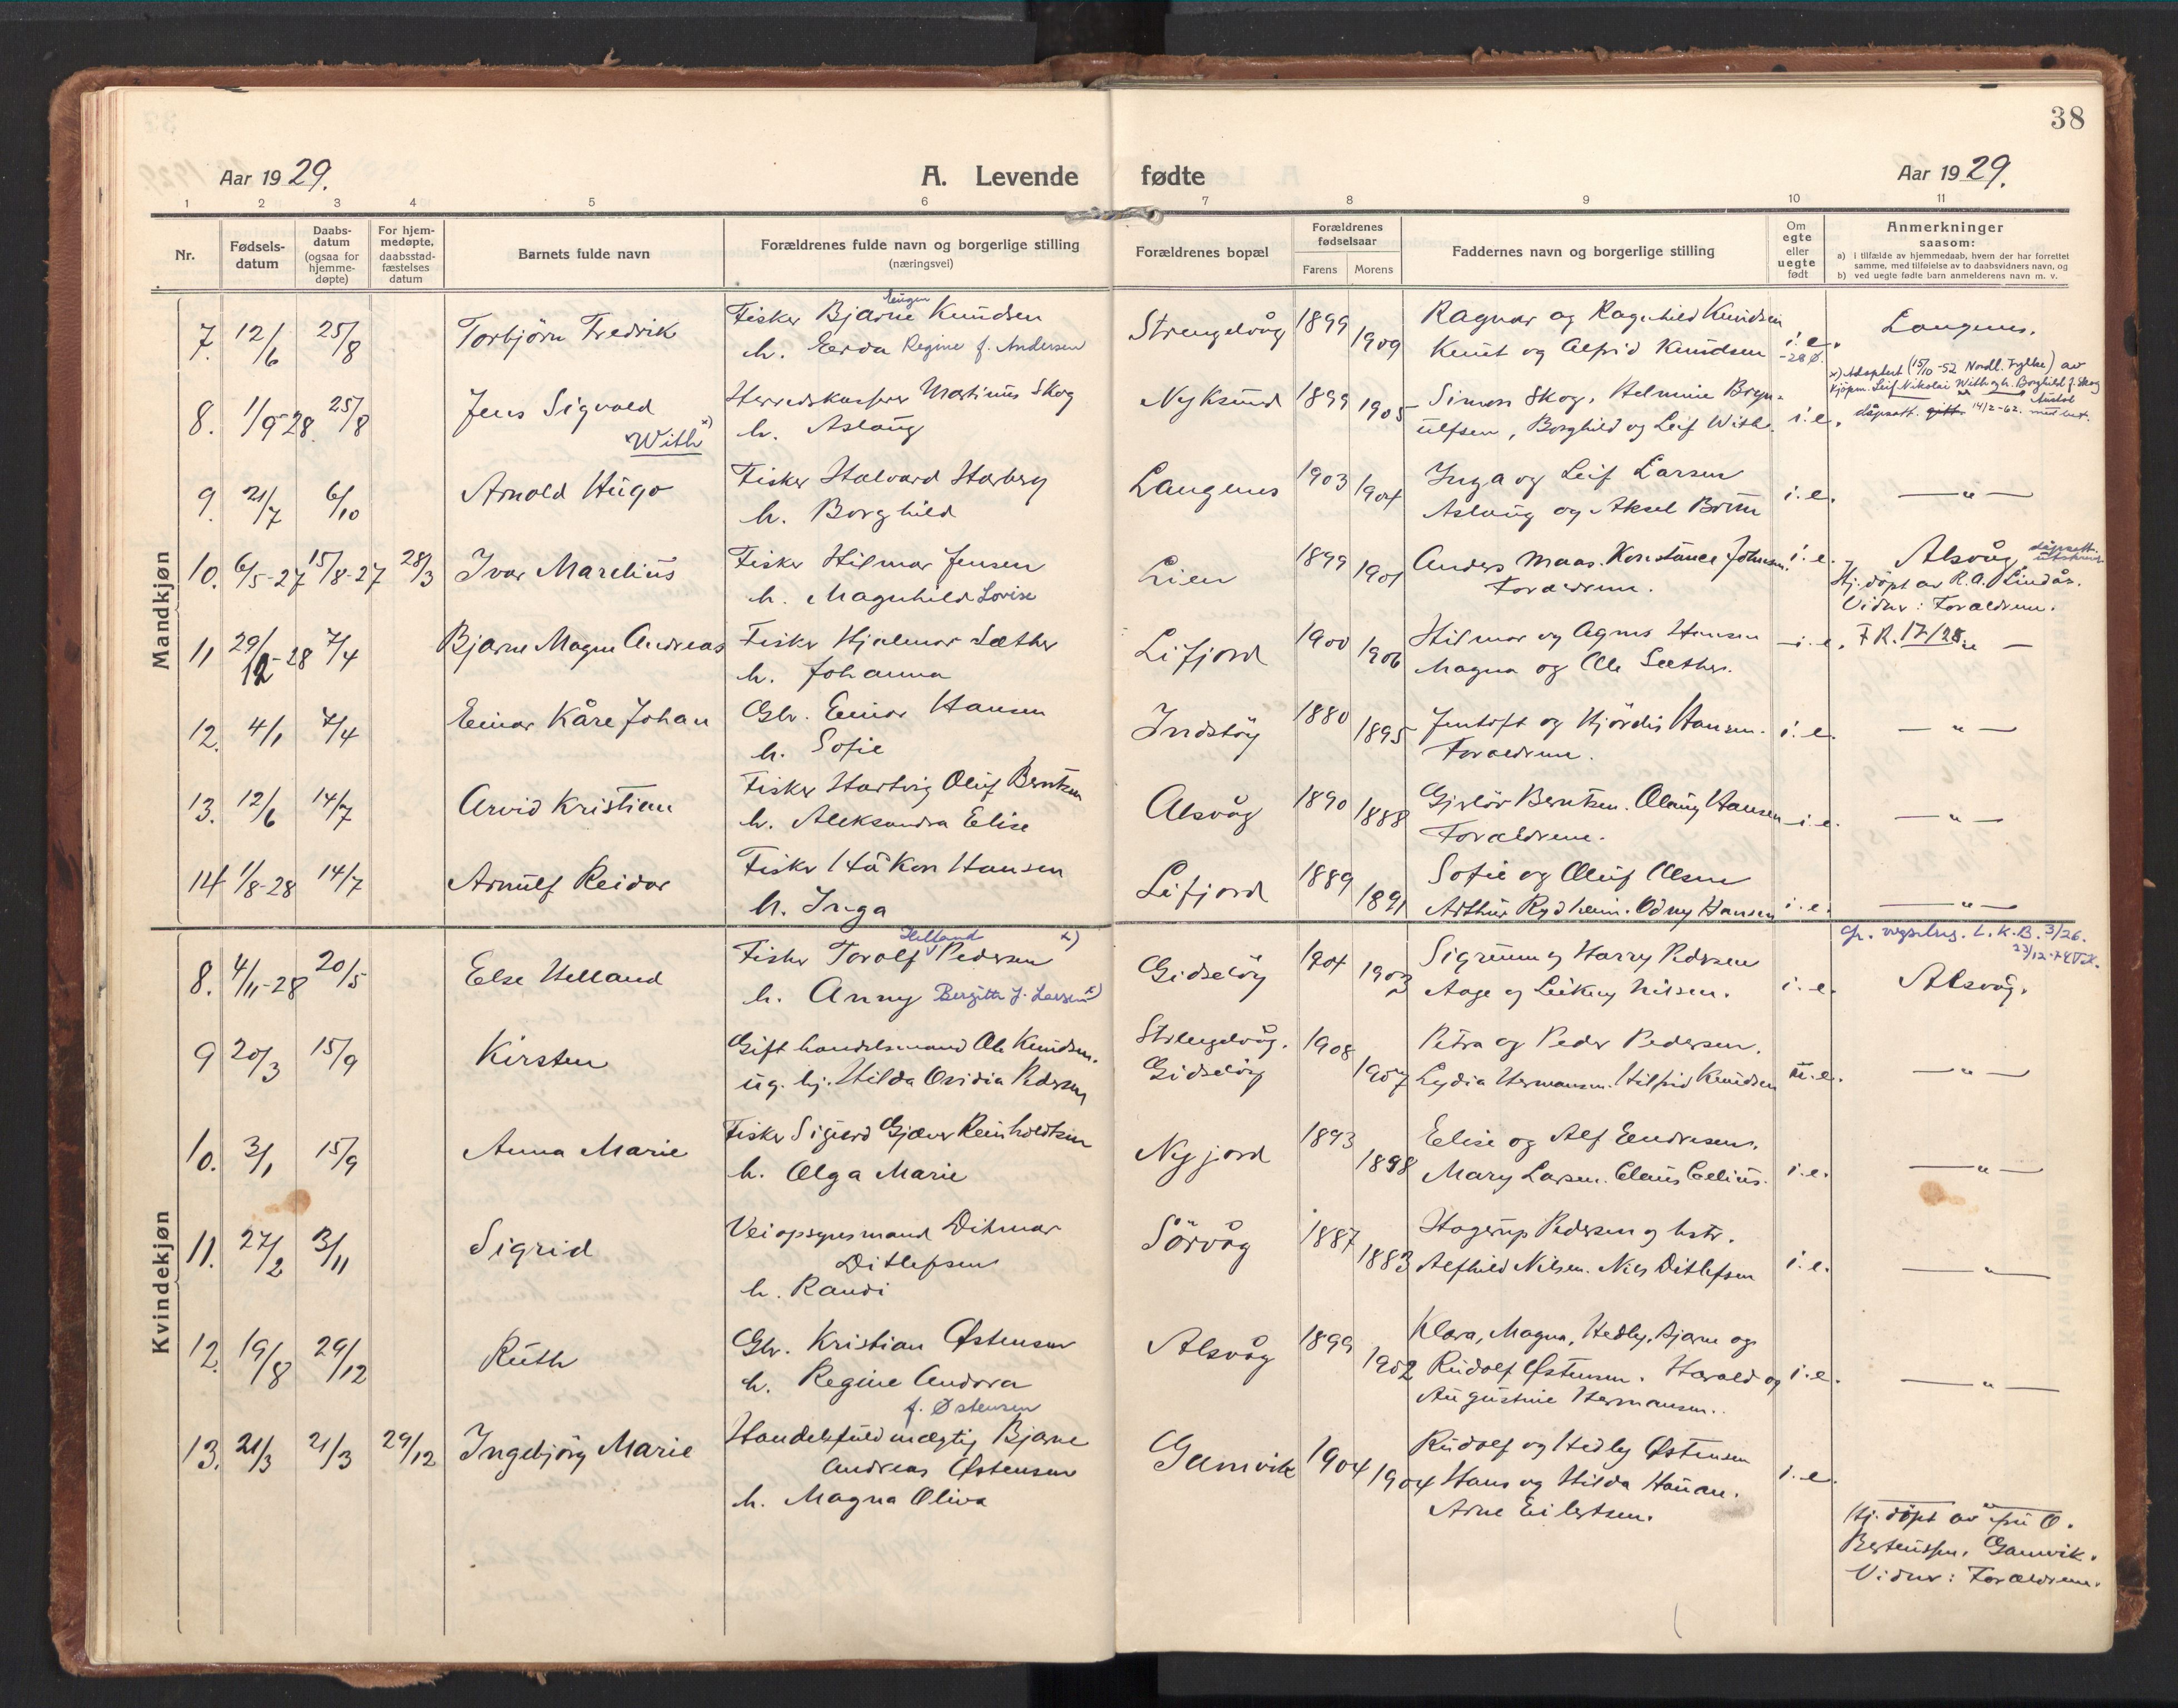 38
Aar 1929.
A. Levende fødte
Aar 1929.
1 2 3 4 5 6 7 8 9 10 11
Nr.
Fødsels-
datum
Daabs-
datum
(ogsaa for
hjemme-
døpte)
For hjem-
medøpte,
daabsstad-
fæstelses
datum
Barnets fulde navn
Forældrenes fulde navn og borgerlige stilling
(næringsvei)
Forældrenes bopæl
Forældrenes
fødselsaar
Farens Morens
Faddernes navn og borgerlige stilling
Om
egte
eller
uegte
født
Anmerkninger
saasom:
a) i tilfælde av hjemmedaab, hvem der har forrettet
samme, med tilføielse av to daabsvidners navn, og
b) ved uegte fødte barn anmelderens navn m. v.
Mandkjøn
7. 12/6 25/8 Torbjörn Fredrik
Fisker Bjarne Eugen Knudsen
h. Gerda Regine f. Andersen
Strengelvåg 1899 1909
Ragnar og Ragnhild Knudsen
Knut og Alfrid Knudsen
i.e.
-28 Ø.
Langenes.
8. 1/9-28. 25/8 Jens Sigvald
With x)
Herredskasserer Martinus Skog
h. Aslaug
Nyksund 1899 1905
Simon Skog, Helmine Bryn-
ulfsen, Borghild og Leif With.
i.e.
x) Adoptert (15/10-52 Nordl. Fylke) av
Kjøpm. Leif Nikolai With og h. Borghild f. Skog
dåpsatt. 14/2-62.
9. 21/7 6/10 Arnold Hugo
Fisker Halvard Storberg
h. Borghild
Langenes 1903 1904
Inga og Leif Larsen
Aslaug og Aksel Brun
i.e.
— „ —
10. 6/5-27 15/8-27 28/3 Ivar Marelius
Fisker Hilmar Jensen
h. Magnhild Lovise
Lien 1899 1901
Anders Maas. Konstance Johnsen.
Forældrene.
i.e.
Alsvåg dåpsatt. utskrevet
Hj. döpt av R.A. Lindås.
Vidner: Forældrene.
11 29/12-28 7/4 Bjarne Magne Andreas
Fisker Hjalmar Sæther
h. Johanna
Lifjord 1900 1906
Hilmar og Agnes Hansen
Magna og Ole Sæther.
i.e.
F.R. 17/28 „ —
12. 4/1 7/4 Einar Kåre Johan
Gbr. Einar Hansen
h. Sofie
Indstöy 1880 1895
Jentoft og Hjördis Hansen.
Forældrene.
i.e.
— „ —
13. 12/6 14/7 Arvid Kristian
Fisker Hartvig Oluf Berntsen
h. Aleksandra Elise
Alsvåg 1890 1888
Gjerlöv Berntsen. Olaug Hansen
Forældrene.
i.e.
— „ —
14 1/8-28 14/7 Arnulf Reidar
Fisker Håkon Hansen
h. Inga
Lifjord 1889 1891
Sofie og Oluf Olsen
Arthur Rydheim. Odny Hansen
i.e.
— „ —
Kvindekjøn
8. 4/11-28 20/5 Else Helland
Fisker Torolf Helland Pedersen x)
h. Anny Bergitte f. Larsen x)
Gidselöy 1904 1903
Sigrunn og Harry Pedersen
Aage og Leikny Nilsen.
i.e.
L.K.B. 3/26.
Alsvåg.
9 20/3 15/9 Kirsten
Gift handelsmand Ole Knudsen.
ug. hj. Hilda Ovidia Pedersen
Strengelvåg.
Gidselöy
1908 1907
Petra og Peder Pedersen.
Lydia Hermansen. Hilfrid Knudsen
u.e.
— „ —
10. 3/1 15/9 Anna Marie
Fisker Sigurd Gjæver Reinholdtsen
h. Olga Marie
Nyjord 1893 1898
Elise og Alf Endresen.
Mary Larsen. Claus Celius.
i.e.
— „ —
11. 27/2 3/11 Sigrid
Veiopsynsmand Ditmar
Ditlefsen
h. Randi
Sörvåg 1887 1883
Hagerup Pedersen og hstr.
Alfhild Nilsen. Nils Ditlefsen
i.e.
— „ —
12. 19/8 29/12 Ruth
Gbr. Kristian Østensen
h. Regine Andora
f. Østensen
Alsvåg 1899 1902
Klara, Magna, Hedley, Bjarne og
Rudolf Østensen. Harald og
Augustine Hermansen.
i.e.
— „ —
13. 21/3 21/3 29/12 Ingebjörg Marie
Handelsfuldmægtig Bjarne
Andreas Østensen
h. Magna Oliva
Gamvik 1904 1904
Rudolf og Hedley Østensen
Hans og Hilda Hauan.
Arne Eilertsen.
i.e.
— „ —
Hj. döpt av fru O.
Berteussen, Gamvik.
Vidner: Forældrene.